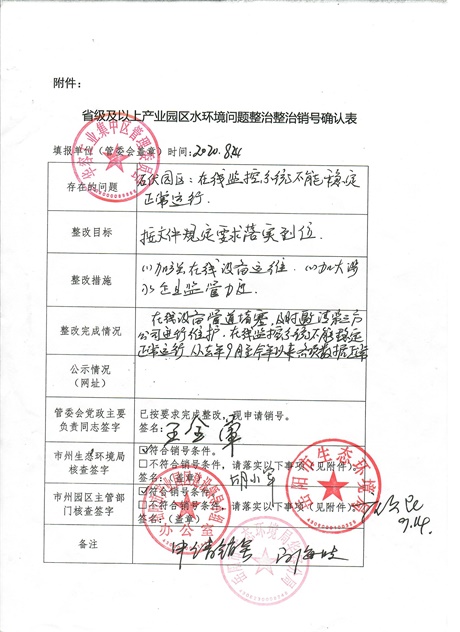 附件：
省级及以上产业园区水环境问题整治整治销号确认表
填报单位（管委会盖章）时间：2020.8.24
存在的问题
石伏园区：在线监控系统不能稳定
正常运行.
整改目标
按文件规定要求落实到位.
整改措施
(1)加强在线设备运维. (2)加大涉
水企业监管力度.
整改完成情况
在线设备管道堵塞，及时邀请第三方
公司进行维护. 在线监控系统不能稳定
正常运行，从去年9月至今年以来
公示情况
（网址）
管委会党政主要
负责同志签字
已按要求完成整改，现申请销号。
签名：
市州生态环境局
核查签字
☑符合销号条件。
□不符合销号条件，请落实以下事项（见附件）
签名：（盖章）
岳阳市生态环境局
市州园区主管部
门核查签字
☑符合销号条件。
□不符合销号条件，请落实以下事项（见附件）
签名：（盖章）
9.14.
办公室
备注
申请销号